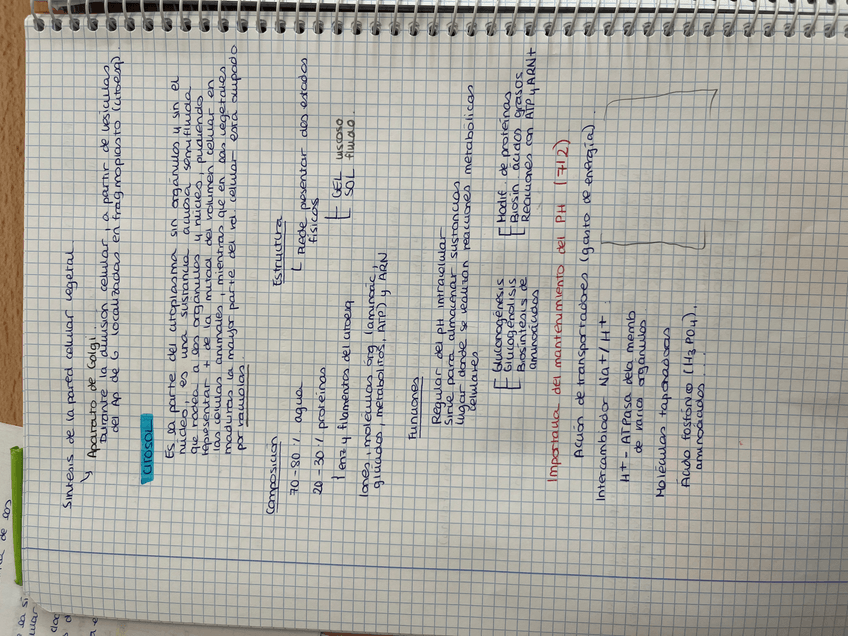 Síntesis de la pared celular vegetal
↳ Aparato de Golgi.
Durante la división celular, a partir de vesículas
del Ap de G localizadas en fragmoplasto (citoesq).
CITOSOL
Es la parte del citoplasma sin orgánulos y sin el
núcleo, es una sustancia acuosa semifluida
que rodea a los orgánulos y núcleo, pudiendo
representar + de la mitad del volumen celular en
las células animales, mientras que en las vegetales
maduras la mayor parte del vol. celular está ocupado
por vacuolas.
Composición
70-80% agua
20-30% proteínas
enz y filamentos del citoesq
Iones, moléculas org (aminoác,
glúcidos, metabolitos, ATP) y ARN
Estructura
Puede presentar dos estados
físicos
GEL viscoso
SOL fluido.
Funciones
Regular del pH intracelular
Sirve para almacenar sustancias
Lugar donde se realizan reacciones metabólicas
celulares
Gluconogénesis
Glucogenolisis
Biosíntesis de
aminoácidos
Modif. de proteínas
Biosin. ácidos grasos
Reacciones con ATP y ARNt
Importancia del mantenimiento del PH (7,2)
Acción de transportadores (gasto de energía).
Intercambiador Na+/H+
H+ - ATPasa de la memb
de varios orgánulos
Moléculas taponadoras
Ácido fosfórico (H3PO4),
aminoácidos...